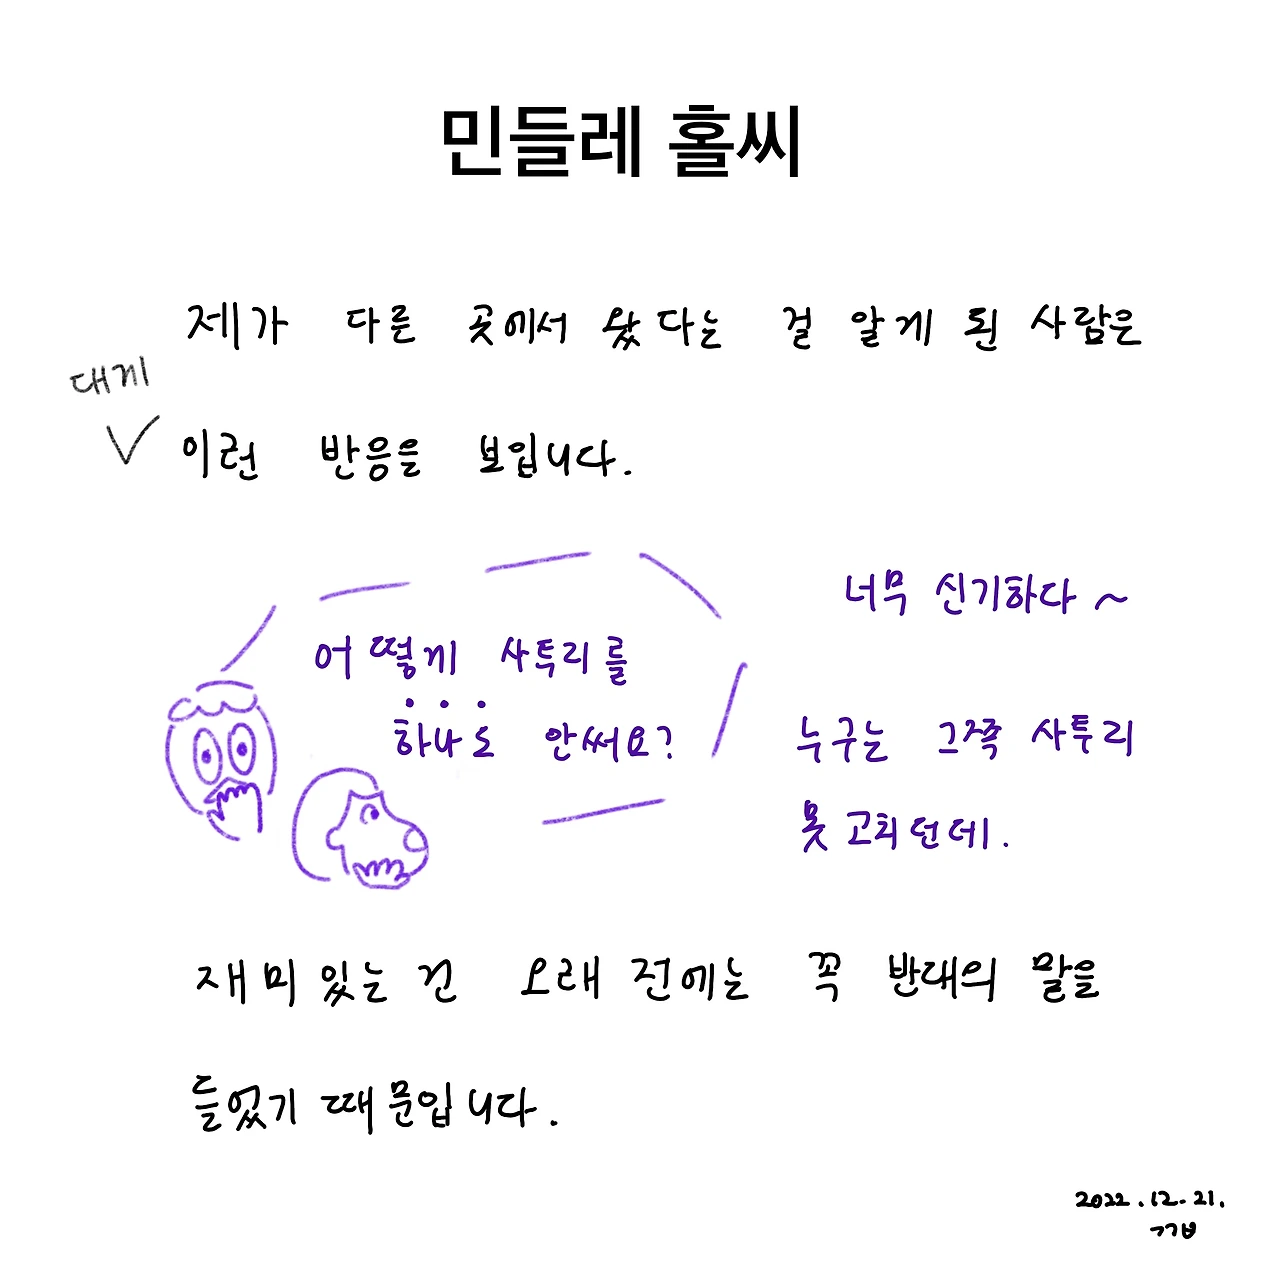 민들레 홀씨
제가 다른 곳에서 왔다는 걸 알게 된 사람은
대게
이런 반응을 보입니다.
어떻게 사투리를
하나도 안써요?
너무 신기하다~
누구는 그쪽 사투리
못 고치던데.
재미있는 건 오래 전에는 꼭 반대의 말을
들었기 때문입니다.
2022.12.21.
ㄲㅂ